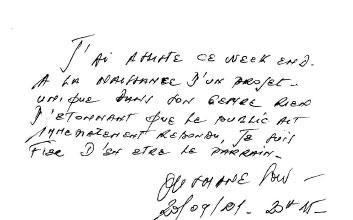 J'AI ASSISTE CE WEEK END.
A LA NAISSANCE D'UN PROJET
UNIQUE DANS SON GENRE RIEN
D'ETONNANT QUE LE PUBLIC AIT
IMMEDIATEMENT REPONDU, JE SUIS
FIER D'EN ETRE LE PARRAIN.